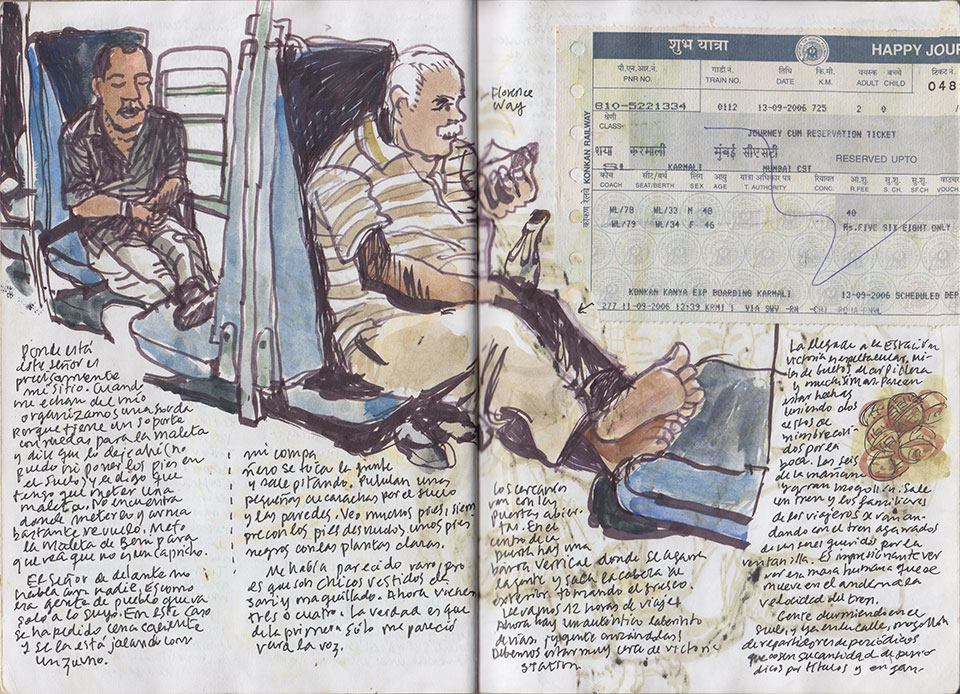 Donde está
este señor es
precisamente
mi sitio. Cuando
me echan del mío
organizamos una gorda
porque tiene un soporte
con ruedas para la maleta
y dice que lo deje ahí (no
puedo ni poner los pies en
el suelo) y le digo que
tengo que meter una
maleta. No encuentra
donde meterlo y arma
bastante revuelo. Meto
la maleta de para
que vea que no es un capricho.
El señor de delante no
habla con nadie. Es como
una gente de pueblo que va
solo a lo suyo. En este caso
se ha pedido cena caliente
y se la está jalando con
un zumo.
mi compa
ñero se toca la frente
y sale pitando. Pululan unas
pequeñas cucarachas por el suelo
y las paredes. Veo muchos pies, siem
pre con los pies desnudos, unos pies
negros con las plantas claras.
Me había parecido raro, pero
es que son chicos vestidos de
sari y maquillados. Ahora vienen
tres o cuatro. La verdad es que
de la primera sólo me pareció
rara la voz.
Florence
Way
शुभ यात्रा
HAPPY JOUR
पी.एन.आर.नं.
PNR NO.
गाड़ी नं.
TRAIN NO.
तिथि
DATE
कि.मी.
K.M.
वयस्क बच्चे
ADULT CHILD
टिकट नं.
048
810-5221334 0112 13-09-2006 725 2 0
श्रेणी
CLASS
JOURNEY CUM RESERVATION TICKET
करमाली मुंबई सीएसटी
RESERVED UPTO
SL KARMALI MUMBAI CST
कोच सीट/बर्थ लिंग आयु यात्रा अधिकार पत्र रियायत आ.शु. सु.शु. सु.शु. वाउचर
COACH SEAT/BERTH SEX AGE T. AUTHORITY CONC. R.FEE S. CH. SF.CH VOUCH.
WL/78 WL/33 M 48 40
WL/79 WL/34 F 46 Rs.FIVE SIX EIGHT ONLY
KONKAN KANYA EXP BOARDING KARMALI 13-09-2006 SCHEDULED DEP
277 11-09-2006 13:39 KRMI1 VIA SWV -RN -CHI -ROHA-PNVL
कोंकण रेलवे KONKAN RAILWAY
Los cercanías
van con las
puertas abier-
tas. En el
centro de la
puerta hay una
barra vertical donde se agarra
la gente y saca la cabeza al
exterior tomando el fresco.
Llevamos 12 horas de viaje y
ahora hay un auténtico laberinto
de vías, y gente cruzándolas!
Debemos estar muy cerca de Victoria
Station.
La llegada a la estación
Victoria es espectacular, mi-
les de bultos de arpillera
y muchísimas parecen
estar hechas
uniendo dos
cestos de
mimbre cosi-
dos por la
boca. Las seis
de la mañana
y gran mogollón. Sale
un tren y los familiares
de los viajeros se van an-
dando con el tren agarrados
de un seres queridos por la
ventanilla. Es impresionante ver
una masa humana que se
mueve en el andén a la
velocidad del tren.
Gente durmiendo en el
suelo, y ya en la calle, mogollón
de repartidores de periódicos
que cosen su cantidad de perió
dicos por títulos y en gan-